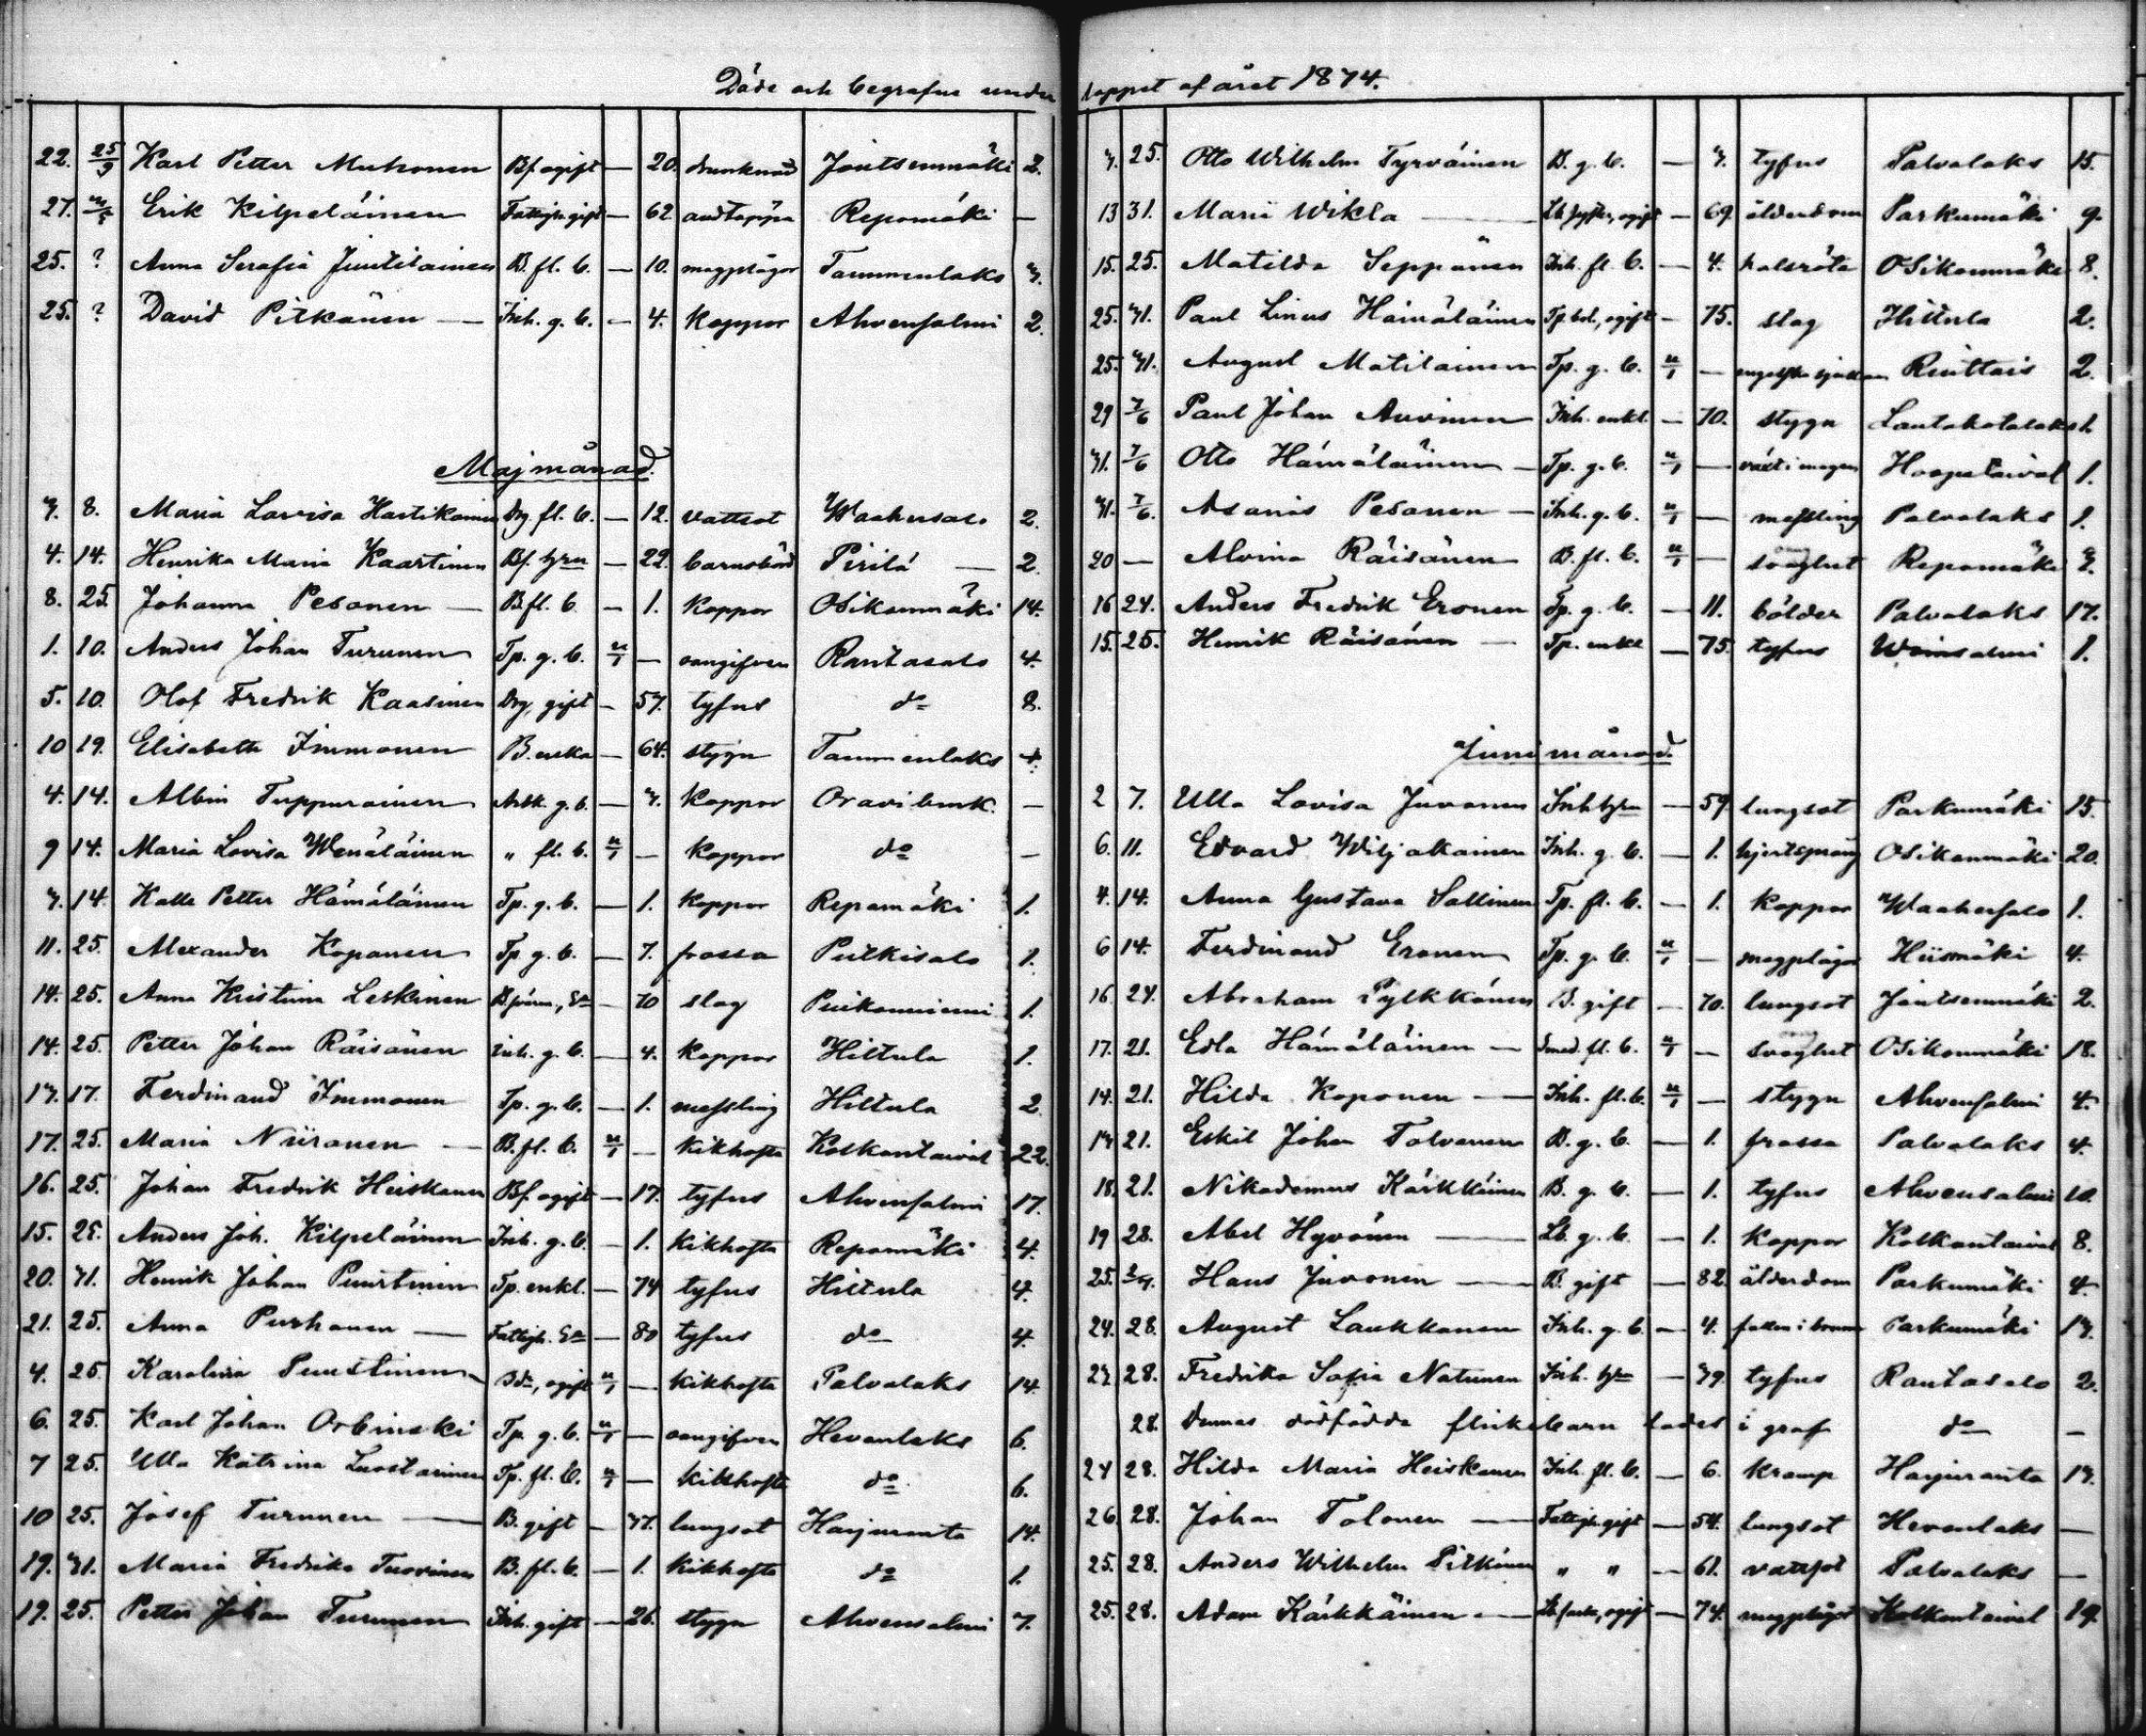 Döde och begrafne under loppet af året 1874.
22. 25/3 Karl Petter Muhonen Bf ogift — 20. drunknad Joutsenmäki 2.
27. Erik Kilpeläinen Fattigh gift — 62 andtäppa Repomäki —
25. ? Anna Serafia Juutilainen B. fl. b. — 10. magplågor Tammenlaks 3.
25. ? David Pitkänen — Inh. g. b. — 4. koppor Ahvensalmi 2.
Maj månad.
3. 8. Maria Lovisa Hartikainen Drg fl. b. — 12. vattsot Waahersalo 2.
4. 14. Henrika Maria Kaartinen Bf. hru — 22. barnsbörd Pirilä — 2.
8. 25. Johanna Pesonen — B fl. b — 1. koppor Osikonmäki 14.
1. 10. Anders Johan Turunen Tp. g. b. u/1 — oangifven Rantasalo 4.
5. 10. Olof Fredrik Kaasinen Drg, gift — 57. tyfus do 8.
10 19. Elisabeth Immonen B. enka — 64. stygn Tammenlaks
4. 14. Albin Tuppurainen Arbk. g. b. — 3. koppor Oravi bruk. —
9 14. Maria Lovisa Wenäläinen " fl. b. u/1 — koppor do —
3. 14 Kalle Petter Hämäläinen Tp. g. b. — 1. koppor Repomäki 1.
11. 25. Alexander Koponen Tp g. b. — 7. frossa Putkisalo 1.
14. 25. Anna Kristiina Leskinen — 70 slag Puikonniemi 1.
14. 25. Petter Johan Räisänen Inh. g. b. — 4. koppor Hiltula 1.
13. 17. Ferdinand Immonen Tp. g. b. — 1. messling Hiltula 2
17. 25. Maria Niiranen — B. fl. b. u/1 — kikhosta Kolkontaival 22.
16. 25. Johan Fredrik Heiskanen Bf. ogift — 17. tyfus Ahvensalmi 17.
15. 25. Anders Joh. Kilpeläinen Inh. g. b. — 1. kikhosta Repomäki 4.
20. 31. Henrik Johan Puustinen Tp. enkl. — 74 tyfus Hiltula 4.
21. 25. Anna Purhonen — Fattigh. — 80 tyfus do 4.
4. 25. Karolina Puustinen ogift u/1 — kikhosta Palvalaks 14.
6. 25. Karl Johan Orbinski Tp. g. b. u/1 — oangifven Hevonlaks 6.
7 25. Ulla Katrina Luostarinen Tp. fl. b. u/1 — kikhosta do 6.
10 25. Josef Turunen — B. gift — 37. lungsot Harjuranta 14.
19. 31. Maria Fredrika B. fl. b. — 1. kikhosta do 1.
19. 25. Petter Johan Turunen Inh. gift — 26. stygn Ahvensalmi 7.
3. 25. Otto Wilhelm Tyrväinen B. g. b. — 3. tyfus Palvalaks 15.
13 31. Maria Wikla — ogift — 69. ålderdom Parkumäki 9.
15. 25. Matilda Seppänen Inh. fl. b. — 4. halsröta Osikonmäki 8.
25. 31. Paul Linus Hämäläinen ogift — 75. slag Hiltula 2.
25. 31. August Matilainen Tp. g. b. u/1 — engelska sjukan 2.
29 7/6 Paul Johan Auvinen Inh. enkl. — 70. stygn Lautakotalaks 1.
31. 7/6 Otto Hämäläinen — Tp. g. b. u/1 — växt i magen Haapataival 1.
31. 7/6. Asarias Pesonen — Inh. g. b. u/1 — messling Palvalaks 1.
20 — Alvina Räisänen B. fl. b. u/1 — svaghet Repomäki 3.
16 24. Anders Fredrik Eronen Tp. g. b. — 11. bölder Palvalaks 17.
15. 25. Henrik Räisänen — Tp. enkl — 75. tyfus 1.
Juni månad.
2 7. Ulla Lovisa Juvonen Inh hru — 59. lungsot Parkumäki 15.
6. 11. Edvard Wiljakainen Inh. g. b. — 1. hjertsprång Osikonmäki 20.
4. 14. Anna Gustava Sallinen Tp. fl. b. — 1. koppor Waahersalo 1.
6 14. Ferdinand Eronen Tp. g. b. u/1 — magplågor Hiismäki 4.
16. 24. Abraham Pylkkänen B. gift — 70. lungsot Joutsenmäki 2.
17. 21. Edla Hämäläinen — Smed. fl. b. u/1 — svaghet Osikonmäki 18.
14. 21. Hilda Koponen — Inh. fl. b. u/1 — stygn Ahvensalmi 4.
13 21. Eskil Johan Tolvanen B. g. b. — 1. frossa Palvalaks 4.
18. 21. Nikodemus Kärkkäinen B. g. b. — 1. tyfus Ahvensalmi 10.
19 28. Abel Hyvönen — Lb. g. b — 1. koppor Kolkontaival 8.
25. Hans Juvonen — B. gift — 82. ålderdom Parkumäki 4.
24. 28. August Laukkanen Inh. g. b. — 4. fallen i brunn Parkumäki 13.
23 28. Fredrika Sofia Natunen Inh. hru — 39. tyfus Rantasalo 2.
28. Dennes dödfödda flickebarn lades i graf do —
24 28. Hilda Maria Heiskanen Inh. fl. b. — 6. kramp Harjuranta 13.
26. 28. Johan Tolonen — Fattigh gift — 54. lungsot Hevonlaks —
25. 28. Anders Wilhelm Pitkänen " " — 61. vattsot Palvalaks —
25. 28. Adam Kärkkäinen — ogift — 74. magplågor Kolkontaival 19.